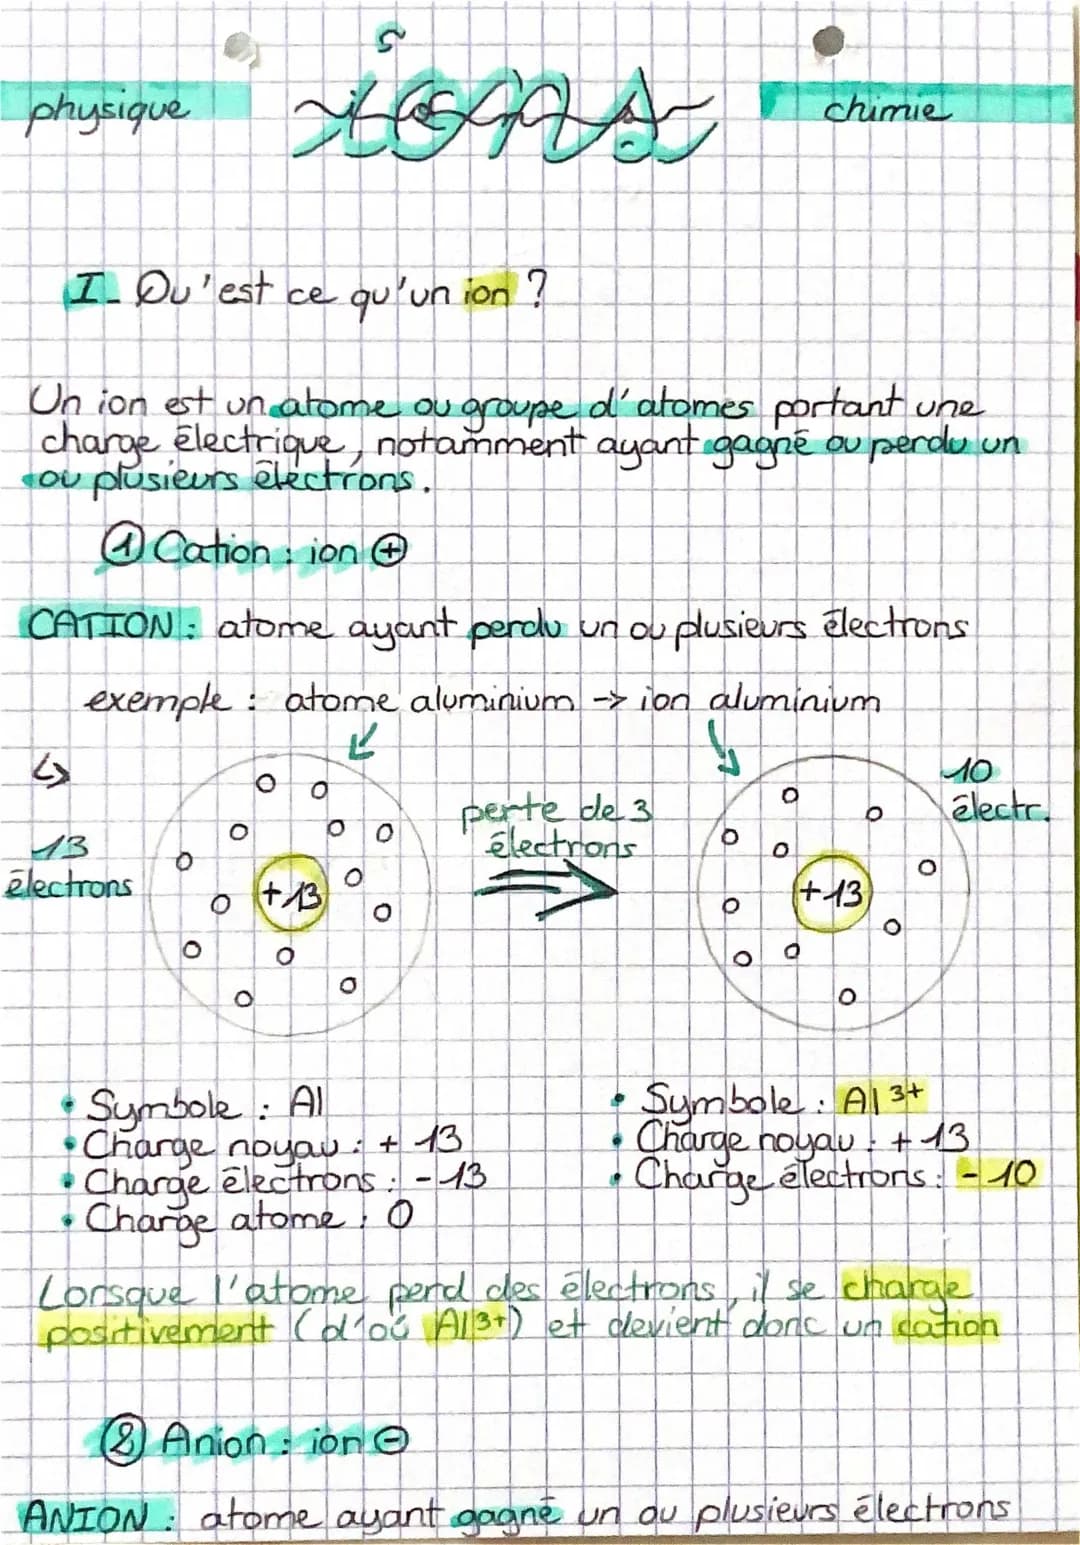 physique
ions
chimie
I- Qu'est ce qu'un ion ?
Un ion est un atome ou groupe d'atomes portant une
charge électrique, notamment ayant gagné ou perdu un
ou plusieurs électrons.
① Cation : ion ⊕
CATION : atome ayant perdu un ou plusieurs électrons
exemple : atome aluminium -> ion aluminium
↳
13
électrons
+13
perte de 3
électrons
+13
10
électr.
• Symbole : Al
• Charge noyau : + 13
• Charge électrons : - 13
• Charge atome : 0
• Symbole : Al 3+
• Charge noyau : + 13
• Charge électrons : - 10
Lorsque l'atome perd des électrons, il se charge
positivement (d'où Al3+) et devient donc un cation
② Anion : ion ⊖
ANION : atome ayant gagné un ou plusieurs électrons